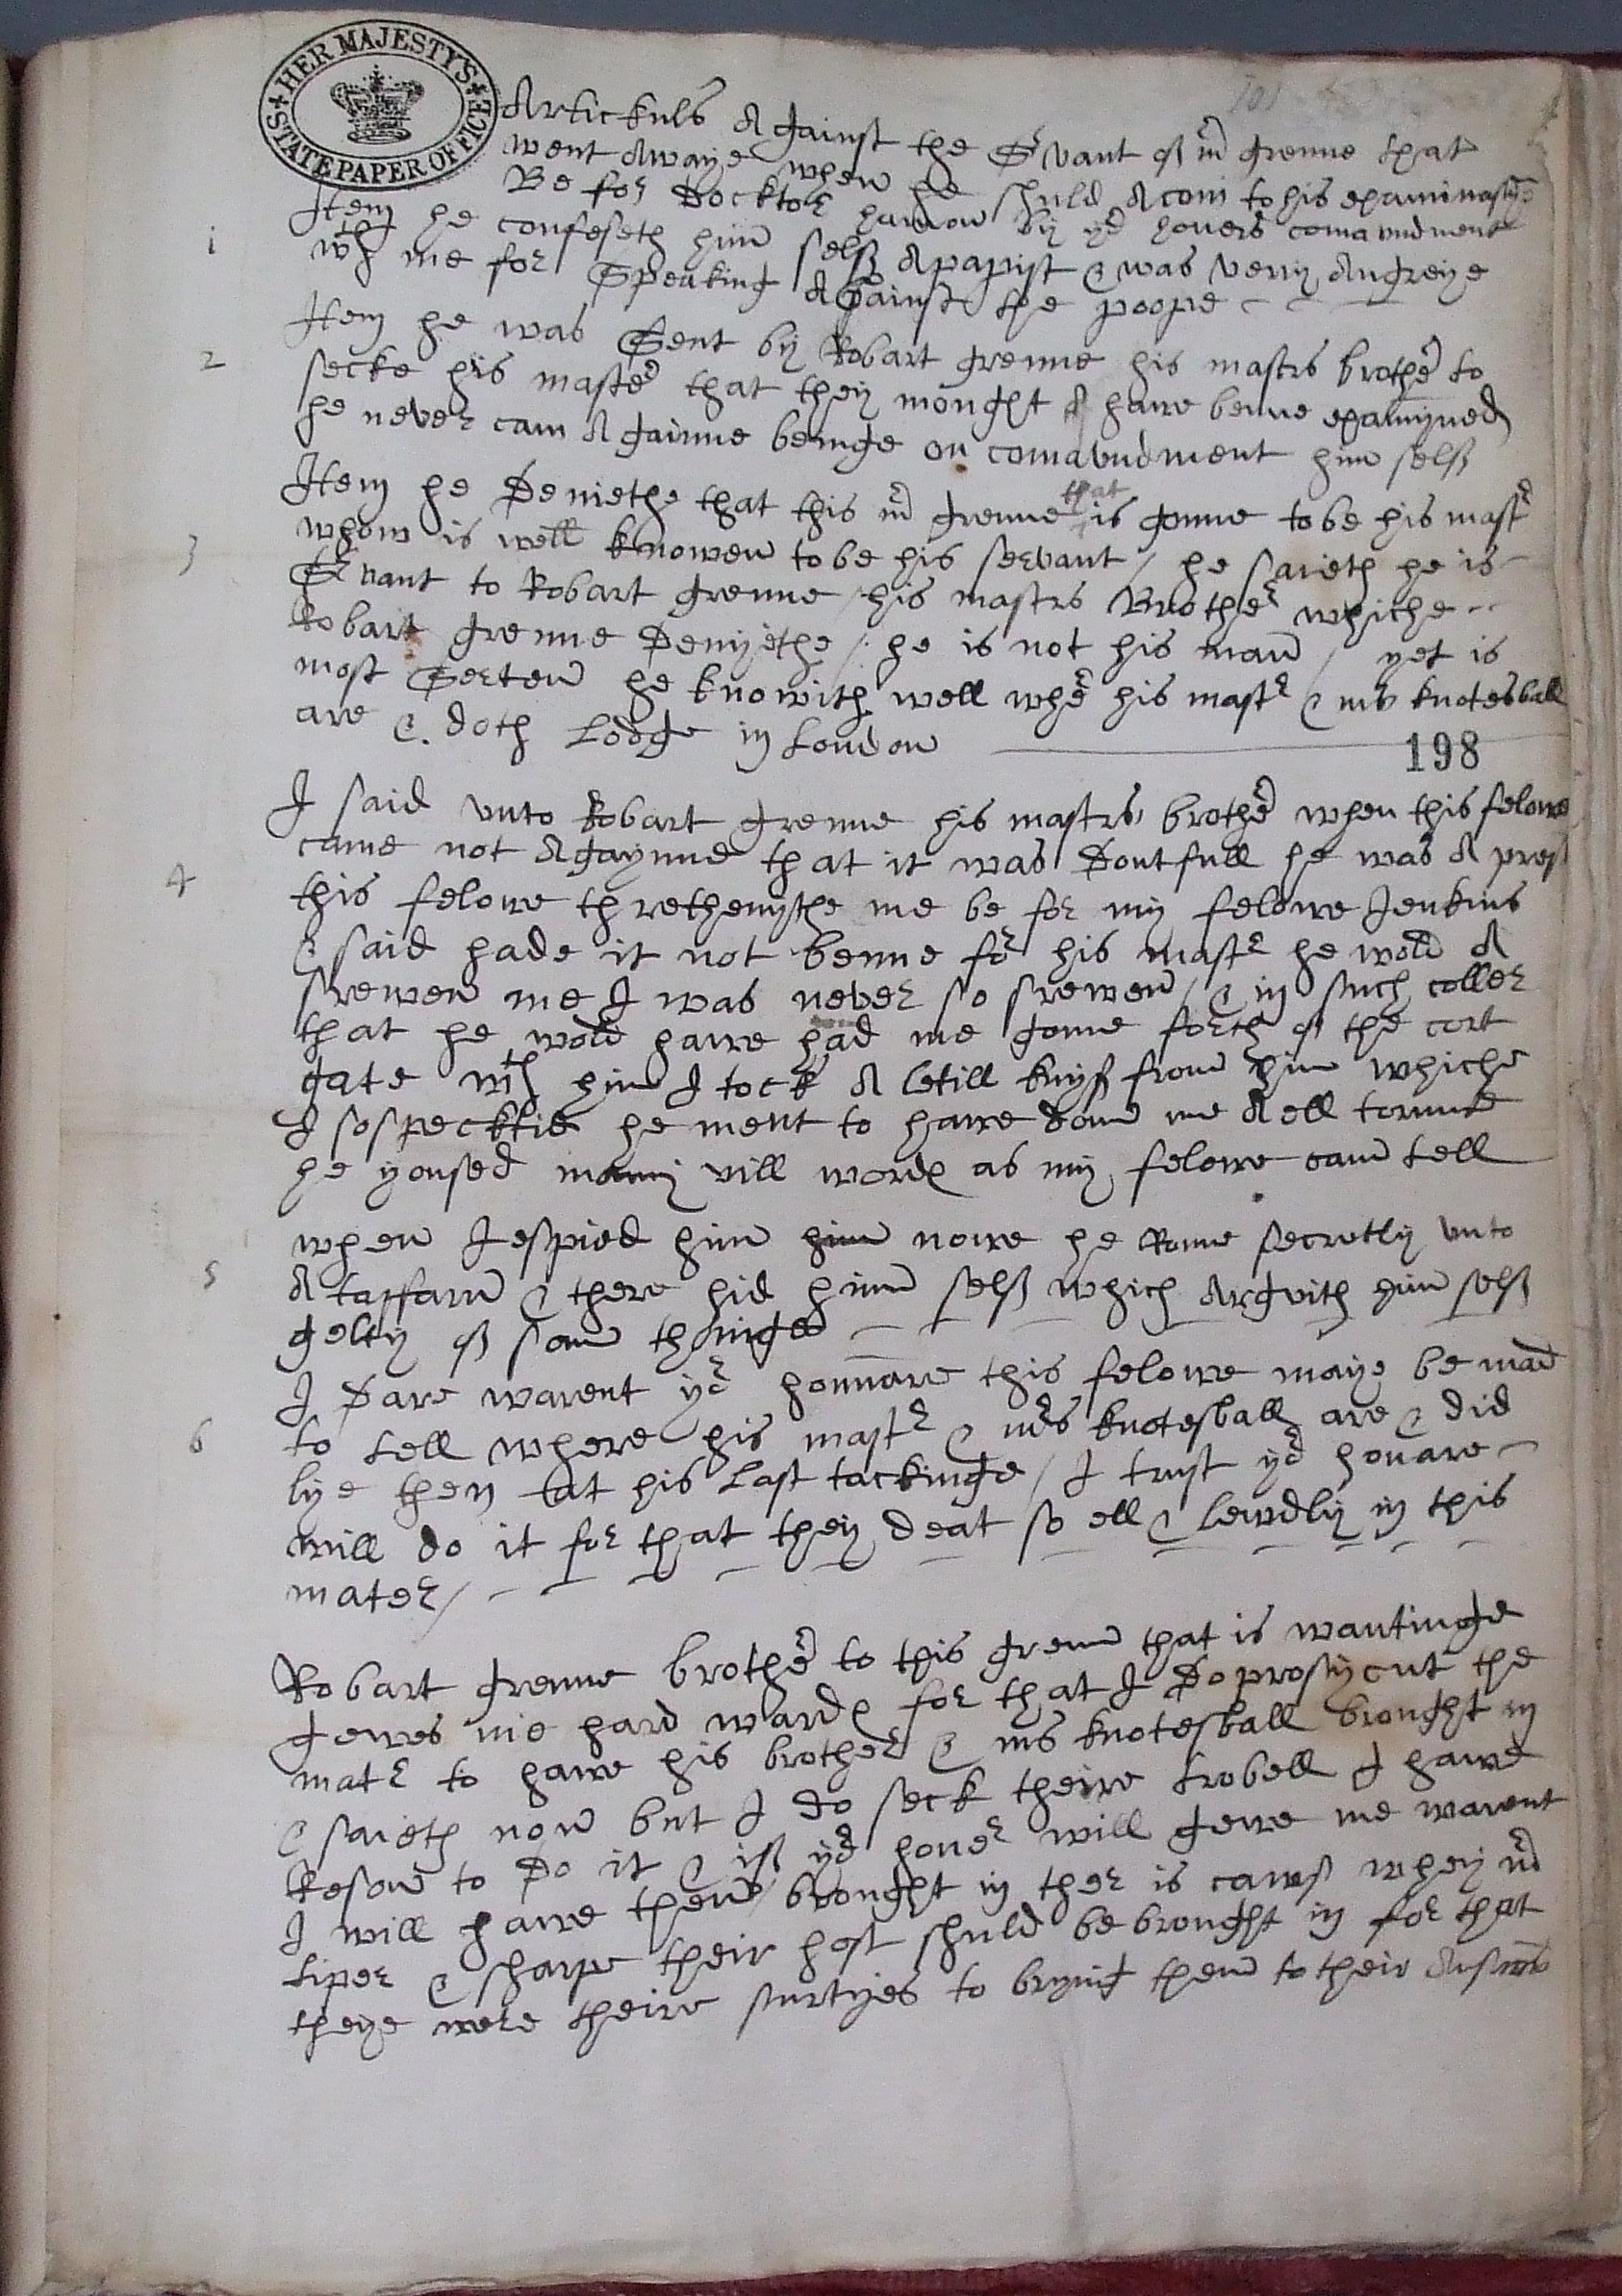 HER MAJESTY'S STATE PAPER OFFICE
101
Artickuls Against the Servant of mr grenne that
went Awaye when he shuld A com to his examinasyo
Be for Docktor hamon by yr honers comaundment
1 Item he confeseth him self A papist & was very Angreye
wth me for Speaking Against the poope
2 Item he was Sent by Robart grenne his mastrs brother to
secke his master that they mought A haue benne examyned
he never cam Againne beinge on comaundment him self
3 Item he Deniethe that this mr grenne that is gonne to be his mastr
whom is well knowen to be his servant / he saieth he is
Servant to Robart grenne / his mastrs Brother whiche
Robart grenne Denyethe / he is not his man / yet is
most Serten he knowith well wher his mastr & mrs knotesball
are & doth Lodge in London
198
I said vnto Robart grenne his mastrs brother when this felowe
came not Agaynne that it was Doutfull he was A prest
4 this felowe threthenythe me be for my felowe Jenkins
& said hade it not benne for his mastr he wold A
srewen me I was never so srewen / & in such coller
that he wold haue had me gonne forth of the cort
gate wth him I tock A letill knyf from him whiche
I sospecktid he ment to haue done me A ell tornne
he yoused many vill words as my felowe cam tell
5 when I espied him him nowe he Ronne secretly vnto
A taffarn & there hid himm self which Argvith him self
gelty of som thinge
I Dare warent yr honnare this felowe maye be mad
6 to tell where his mastr & mrs knotesball are & did
lye then tat his Last tackinge / I trust yr honare
will do it for that they deat so ell & Lewdly in this
mater /
Robart grenne brother to this grenn that is wantinge
gewes me hard wards for that I Do prosycut the
matr to haue his brother & mrs knotesball brought in
& saieth non but I do seck theire trobell I haue
Reson to Do it & if yr honer will geve me warent
I will haue them brought in ther is cawse whey mr
Liper & sharpe their host shuld be brought in for that
theye were theire surtyes to bryng them to their Ansers